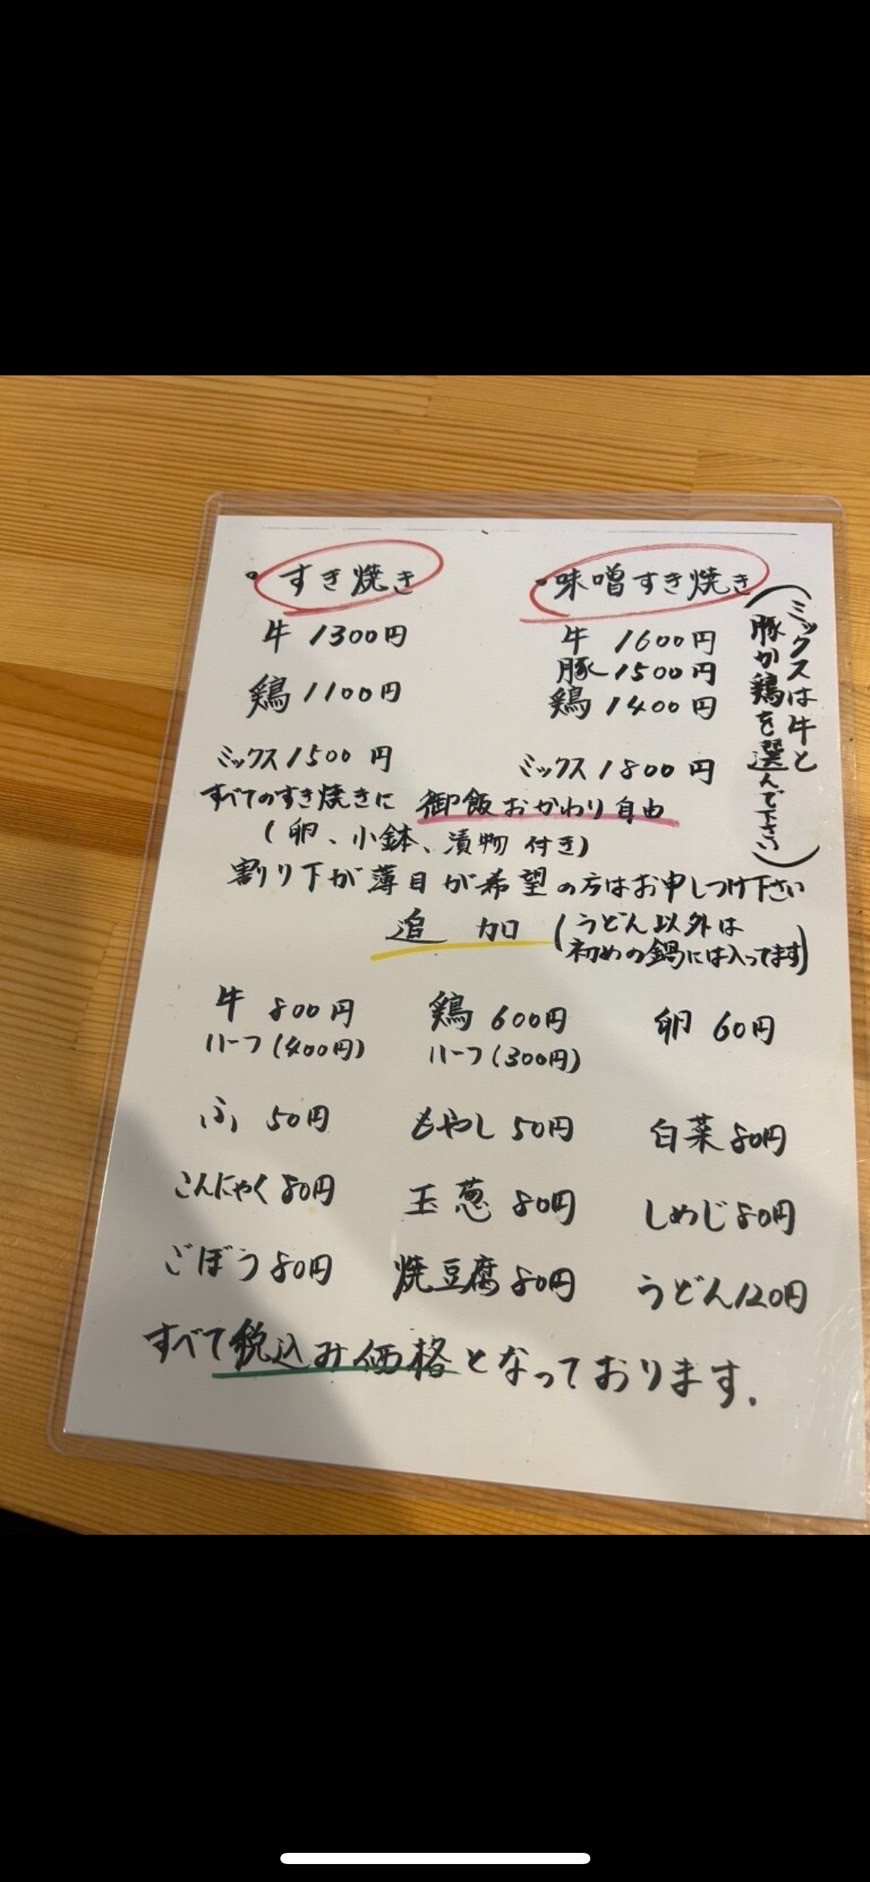 ・すき焼き
牛 1300円
鶏 1100円
ミックス 1500円
・味噌すき焼き
牛 1600円
豚 1500円
鶏 1400円
ミックス 1800円
(ミックスは牛と
豚か鶏を選んで下さい)
すべてのすき焼きに 御飯おかわり自由
(卵、小鉢、漬物 付き)
割り下が薄目が希望の方はお申しつけ下さい
追加 (うどん以外は
初めの鍋には入ってます)
牛 800円 鶏 600円 卵 60円
ハーフ(400円) ハーフ(300円)
ふ 50円 もやし 50円 白菜 80円
こんにゃく 80円 玉葱 80円 しめじ 80円
ごぼう 80円 焼豆腐 80円 うどん 120円
すべて税込み価格となっております.